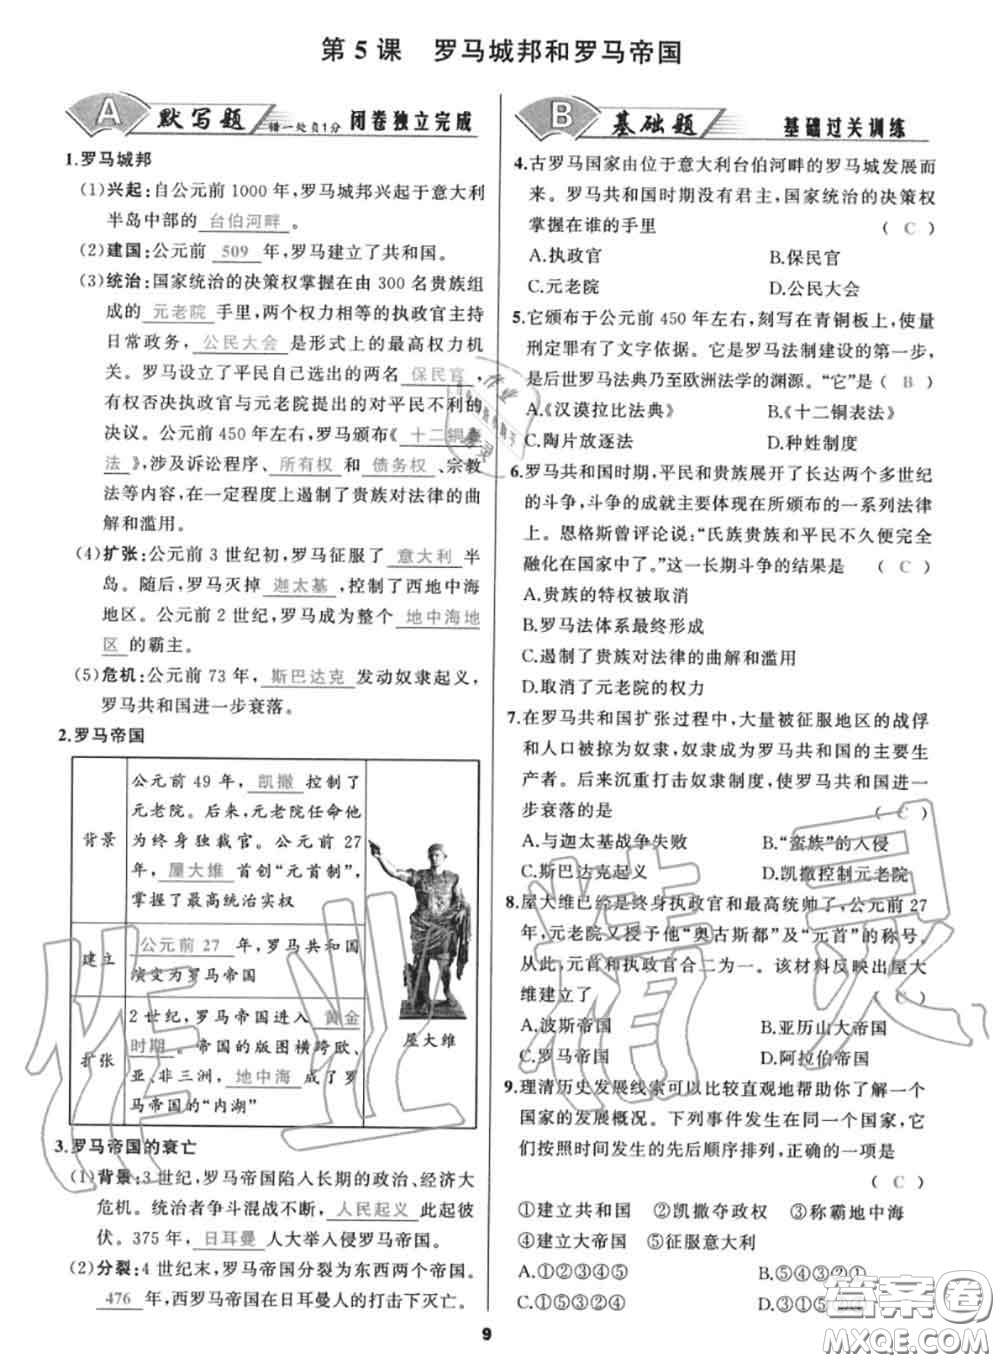 第 5 课　罗马城邦和罗马帝国
A 默写题 错一处负1分 闭卷独立完成
1.罗马城邦
(1)兴起:自公元前 1000 年,罗马城邦兴起于意大利
半岛中部的 台伯河畔 。
(2)建国:公元前 509 年,罗马建立了共和国。
(3)统治:国家统治的决策权掌握在由 300 名贵族组
成的 元老院 手里,两个权力相等的执政官主持
日常政务, 公民大会 是形式上的最高权力机
关。罗马设立了平民自己选出的两名 保民官 ,
有权否决执政官与元老院提出的对平民不利的
决议。公元前 450 年左右,罗马颁布《 十二铜表
法 》,涉及诉讼程序、 所有权 和 债务权 、宗教
法等内容,在一定程度上遏制了贵族对法律的曲
解和滥用。
(4)扩张:公元前 3 世纪初,罗马征服了 意大利 半
岛。随后,罗马灭掉 迦太基 ,控制了西地中海
地区。公元前 2 世纪,罗马成为整个 地中海地
区 的霸主。
(5)危机:公元前 73 年, 斯巴达克 发动奴隶起义,
罗马共和国进一步衰落。
2.罗马帝国
背景
公元前 49 年, 凯撒 控制了
元老院。后来,元老院任命他
为终身独裁官。公元前 27
年, 屋大维 首创“元首制”,
掌握了最高统治实权
建立
公元前 27 年,罗马共和国
演变为罗马帝国
扩张
2 世纪,罗马帝国进入 黄金
时期 。帝国的版图横跨欧、
亚、非三洲, 地中海 成了罗
马帝国的“内湖”
屋大维
3.罗马帝国的衰亡
(1)背景:3 世纪,罗马帝国陷入长期的政治、经济大
危机。统治者争斗混战不断, 人民起义 此起彼
伏。375 年, 日耳曼 人大举入侵罗马帝国。
(2)分裂:4 世纪末,罗马帝国分裂为东西两个帝国。
476 年,西罗马帝国在日耳曼人的打击下灭亡。
B 基础题 基础过关训练
4.古罗马国家由位于意大利台伯河畔的罗马城发展而
来。罗马共和国时期没有君主,国家统治的决策权
掌握在谁的手里 ( C )
A.执政官 B.保民官
C.元老院 D.公民大会
5.它颁布于公元前 450 年左右,刻写在青铜板上,使量
刑定罪有了文字依据。它是罗马法制建设的第一步,
是后世罗马法典乃至欧洲法学的渊源。“它”是 ( B )
A.《汉谟拉比法典》 B.《十二铜表法》
C.陶片放逐法 D.种姓制度
6.罗马共和国时期,平民和贵族展开了长达两个多世纪
的斗争,斗争的成就主要体现在所颁布的一系列法律
上。恩格斯曾评论说:“氏族贵族和平民不久便完全
融化在国家中了。”这一长期斗争的结果是 ( C )
A.贵族的特权被取消
B.罗马法体系最终形成
C.遏制了贵族对法律的曲解和滥用
D.取消了元老院的权力
7.在罗马共和国扩张过程中,大量被征服地区的战俘
和人口被掠为奴隶,奴隶成为罗马共和国的主要生
产者。后来沉重打击奴隶制度,使罗马共和国进一
步衰落的是 ( C )
A.与迦太基战争失败 B.“蛮族”的入侵
C.斯巴达克起义 D.凯撒控制元老院
8.屋大维已经是终身执政官和最高统帅了,公元前 27
年,元老院又授予他“奥古斯都”及“元首”的称号。
从此,元首和执政官合二为一。该材料反映出屋大
维建立了 ( C )
A.波斯帝国 B.亚历山大帝国
C.罗马帝国 D.阿拉伯帝国
9.理清历史发展线索可以比较直观地帮助你了解一个
国家的发展概况。下列事件发生在同一个国家,它
们按照时间发生的先后顺序排列,正确的一项是
( C )
①建立共和国 ②凯撒夺政权 ③称霸地中海
④建立大帝国 ⑤征服意大利
A.①②③④⑤ B.⑤④③②①
C.①⑤③②④ D.①③⑤②④
9
作业精灵
作业精灵
答案圈
MXQE.COM